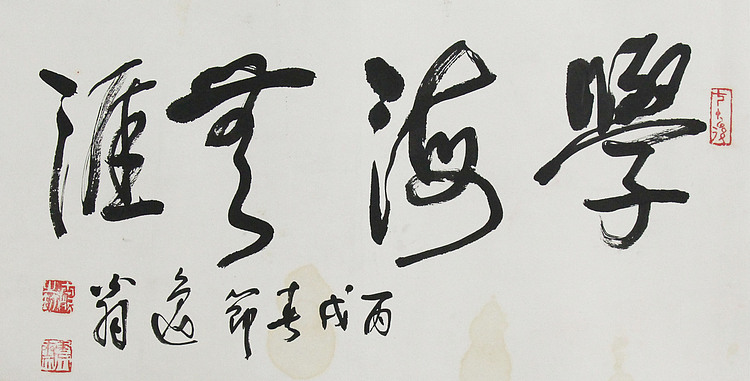 學海無涯
丙戌春節逸翁